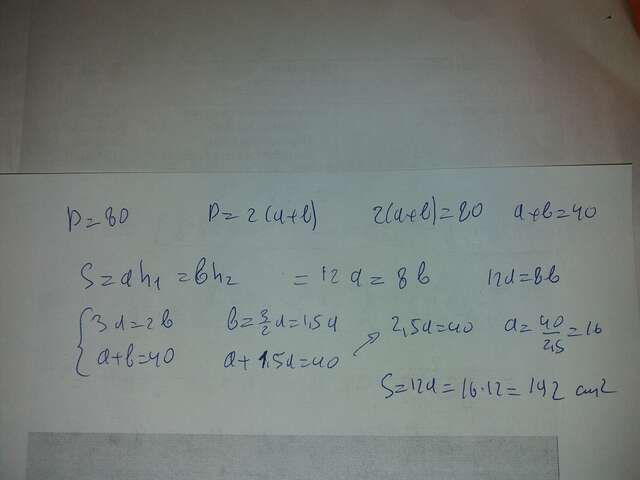 P=80 P=2(a+b) 2(a+b)=80 a+b=40
S=ah₁=bh₂ =12a=8b 12a=8b
{3a=2b b=3/2a=1,5a
a+b=40 a+1,5a=40 → 2,5a=40 a=40/2,5=16
S=12a=16·12=192 см²